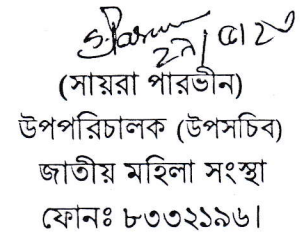 (সায়রা পারভীন)
উপপরিচালক (উপসচিব)
জাতীয় মহিলা সংস্থা
ফোনঃ ৮৩৩২১৯৬।